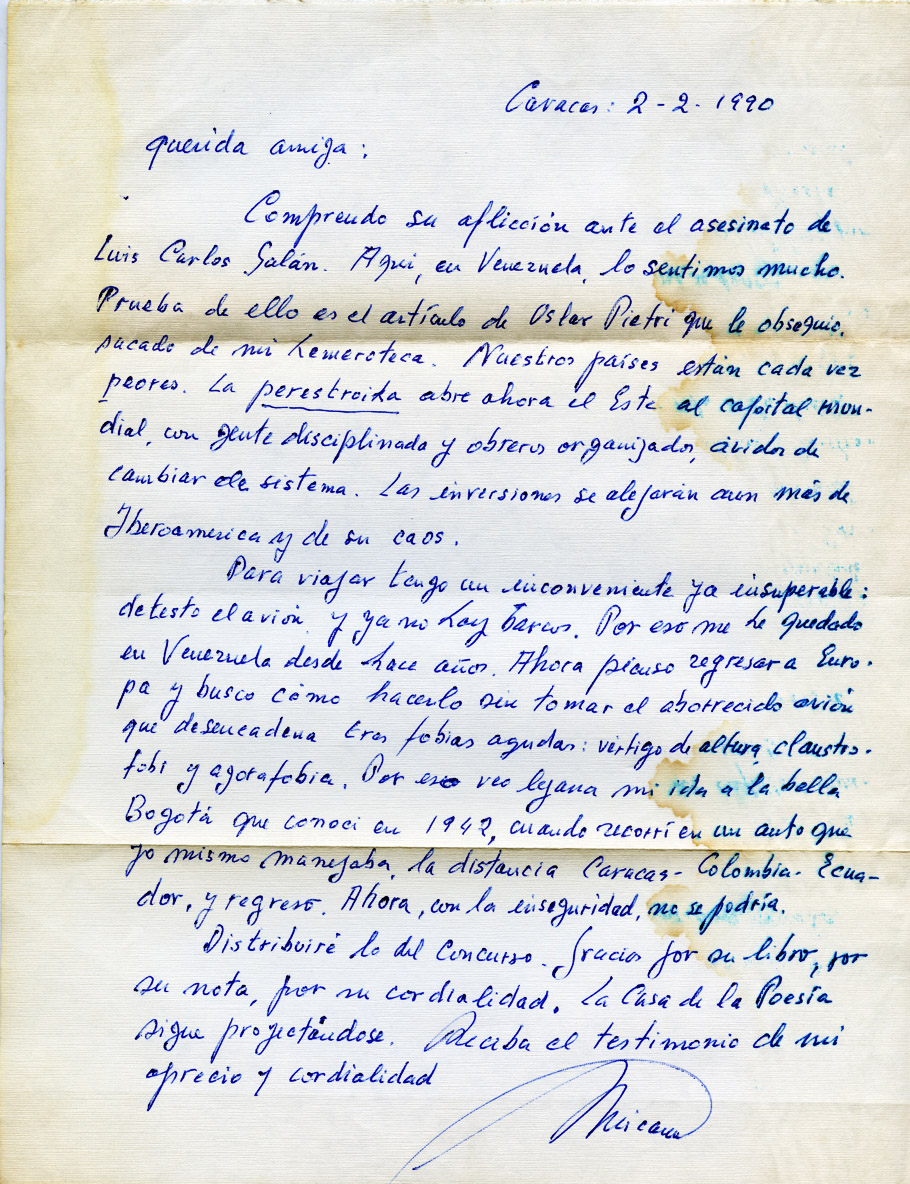 Caracas: 2-2-1990
querida amiga:
Comprendo su aflicción ante el asesinato de
Luis Carlos Galán. Aquí, en Venezuela, lo sentimos mucho.
Prueba de ello es el artículo de Uslar Pietri que le obsequio,
sacado de mi hemeroteca. Nuestros países están cada vez
peores. La perestroida abre ahora el Este al capital mun-
dial, con gente disciplinada y obreros organizados, ávidos de
cambiar de sistema. Las inversiones se alejarán aun más de
Iberoamerica y de su caos.
Para viajar tengo un inconveniente ya insuperable:
detesto el avión y ya no hay barcos. Por eso me he quedado
en Venezuela desde hace años. Ahora pienso regresar a Euro-
pa y busco cómo hacerlo sin tomar el aborrecido avión
que desencadena tres fobias agudas: vértigo de altura, claustro-
fobi y agorafobia. Por eso veo lejana mi ida a la bella
Bogotá que conocí en 1942, cuando recorrí en un auto que
yo mismo manejaba, la distancia Caracas- Colombia- Ecua-
dor, y regreso. Ahora, con la inseguridad, no se podría.
Distribuiré lo del Concurso. Gracias por su libro, por
su nota, por su cordialidad. La Casa de la Poesía
sigue proyectándose. Reciba el testimonio de mi
aprecio y cordialidad